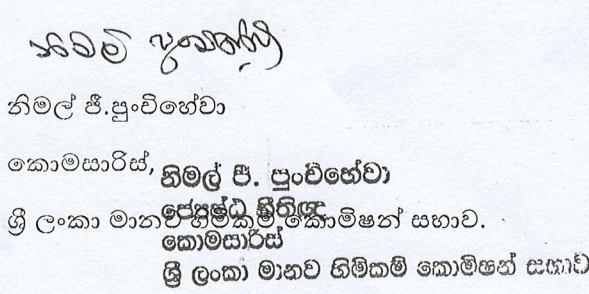 නිමල් ජී.පුංචිහේවා
කොමසාරිස්,
ශ්‍රී ලංකා මානව හිමිකම් කොමිෂන් සභාව.
නිමල් ජී. පුංචිහේවා
ජ්‍යෙෂ්ඨ නීතිඥ
කොමසාරිස්
ශ්‍රී ලංකා මානව හිමිකම් කොමිෂන් සභාව